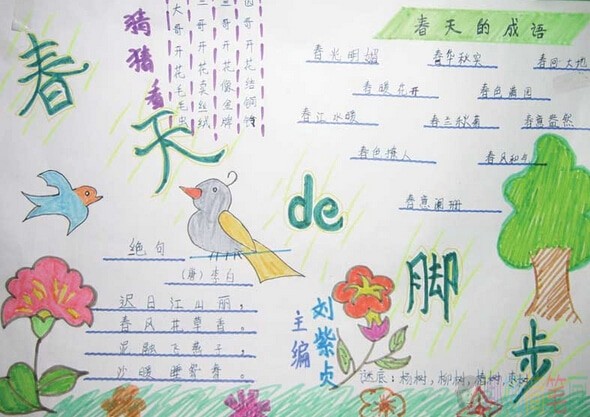 春天de脚步
猜猜看
大哥开花毛毛虫
二哥开花卖丝线
三哥开花像金牌
四哥开花结铜铃
春天的成语
春光明媚 春华秋实 春回大地
春暖花开 春色满园
春江水暖 春兰秋菊 春意盎然
春色撩人 春风和气
春意阑珊
绝句
(唐)李白
迟日江山丽，
春风花草香。
泥融飞燕子，
沙暖睡鸳鸯。
主编
刘紫贞
谜底：杨树，柳树，椿树，枣树